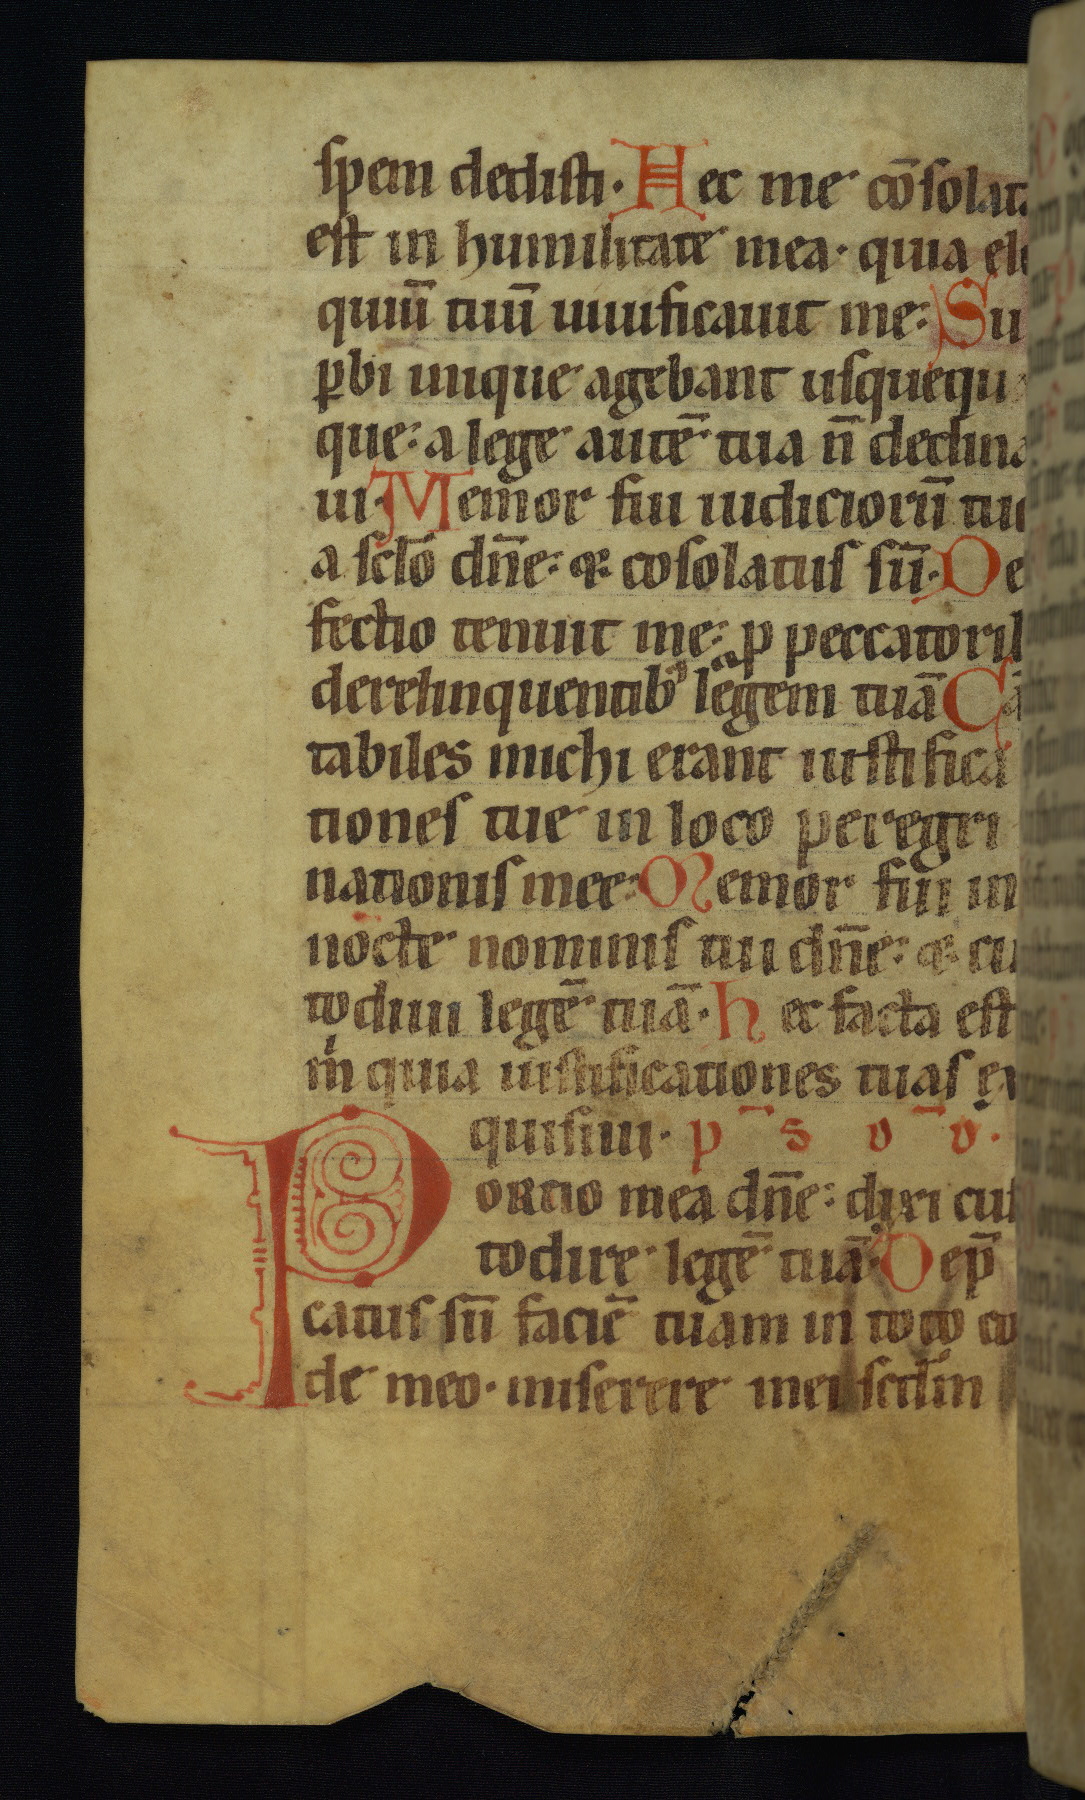 spem dedisti. Hec me cōsolat
est in humilitate mea. quia elo
quiuū tuū uiuificauit me: Su
ꝑbi inique agebant usquequa
que: a lege autē tua n̄ declina
ui. Memor fui iudiciorū tuo
a sclō dn̄e: ⁊ cosolatus sū. De
fectio tenuit me: p peccatorib
derelinquentibꝰ legem tuā Cā
tabiles michi erant iustifica
tiones tue in loco peregri
nationis mee: Memor fui in
nocte nominis tui dn̄e: ⁊ cu
todiui legē tuā. hec facta est
m̄ quia iustificationes tuas ex
quisiui. p̄ s ō v.
Portio mea dn̄e: dixi cus
todire legē tuā. Dep̄
catus sū faciē tuam in toto co
de meo. miserere mei scdm̄